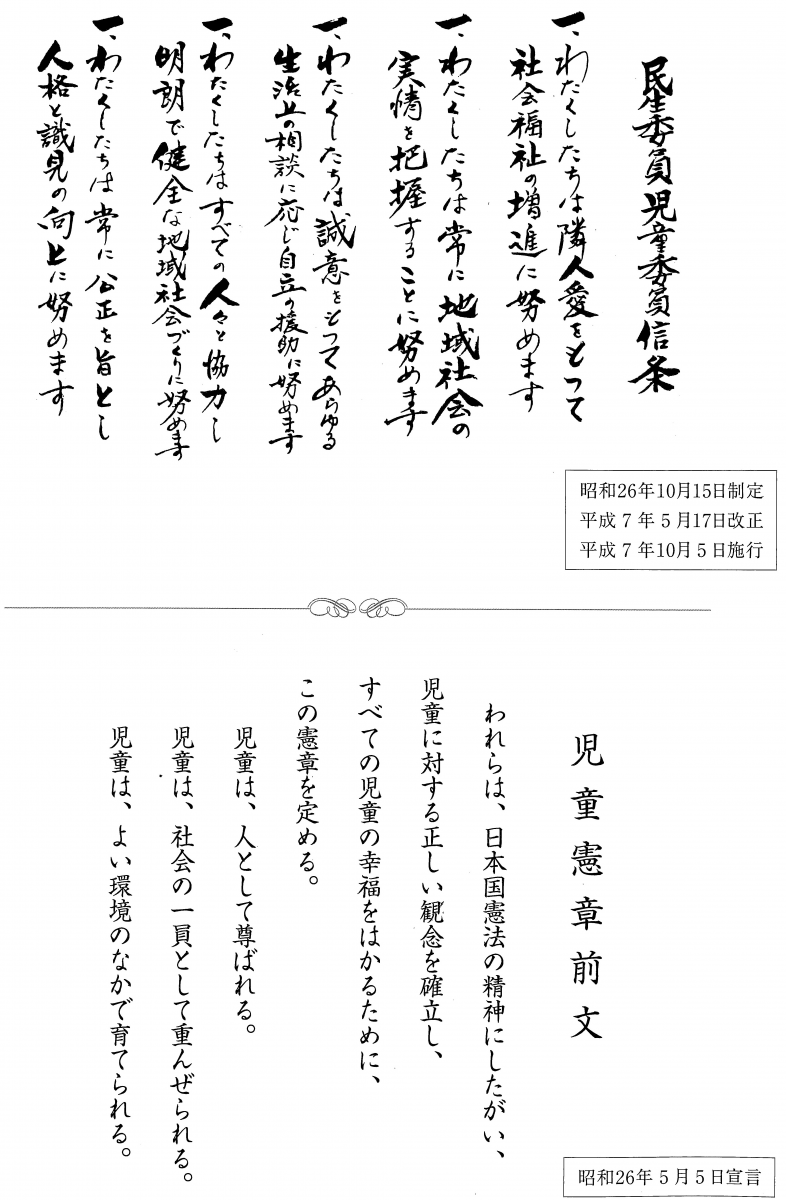 民生委員児童委員信条
一、わたくしたちは隣人愛をもって
社会福祉の増進に努めます
一、わたくしたちは常に地域社会の
実情を把握することに努めます
一、わたくしたちは誠意をもってあらゆる
生活上の相談に応じ自立の援助に努めます
一、わたくしたちはすべての人々と協力し
明朗で健全な地域社会づくりに努めます
一、わたくしたちは常に公正を旨とし
人格と識見の向上に努めます
昭和26年10月15日制定
平成7年5月17日改正
平成7年10月5日施行
児童憲章前文
われらは、日本国憲法の精神にしたがい、
児童に対する正しい観念を確立し、
すべての児童の幸福をはかるために、
この憲章を定める。
児童は、人として尊ばれる。
児童は、社会の一員として重んぜられる。
児童は、よい環境のなかで育てられる。
昭和26年5月5日宣言